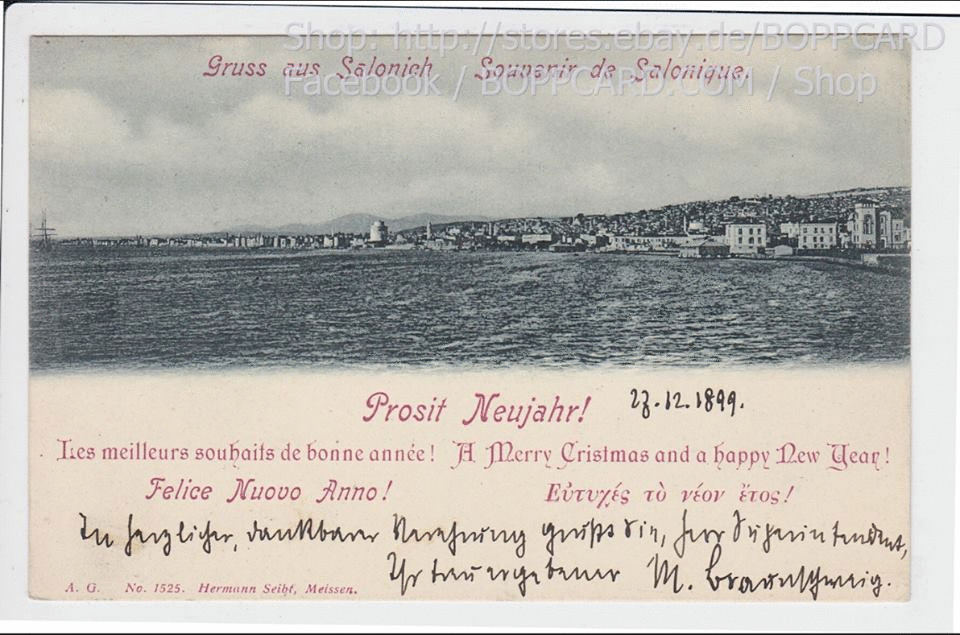 Shop: http://stores.ebay.de/BOPPCARD
Gruss aus Salonich Souvenir de Salonique.
Facebook / BOPPCARD.COM / Shop
Prosit Neujahr! 23.12.1899.
Les meilleurs souhaits de bonne année! A Merry Cristmas and a happy New Year!
Felice Nuovo Anno! Εὐτυχές τὸ νέον ἔτος!
In herzlicher, dankbarer Verehrung grüßt Sie, Herr Superintendent,
Ihr treu ergebener M. Braunschweig.
A. G. No. 1525. Hermann Seibt, Meissen.